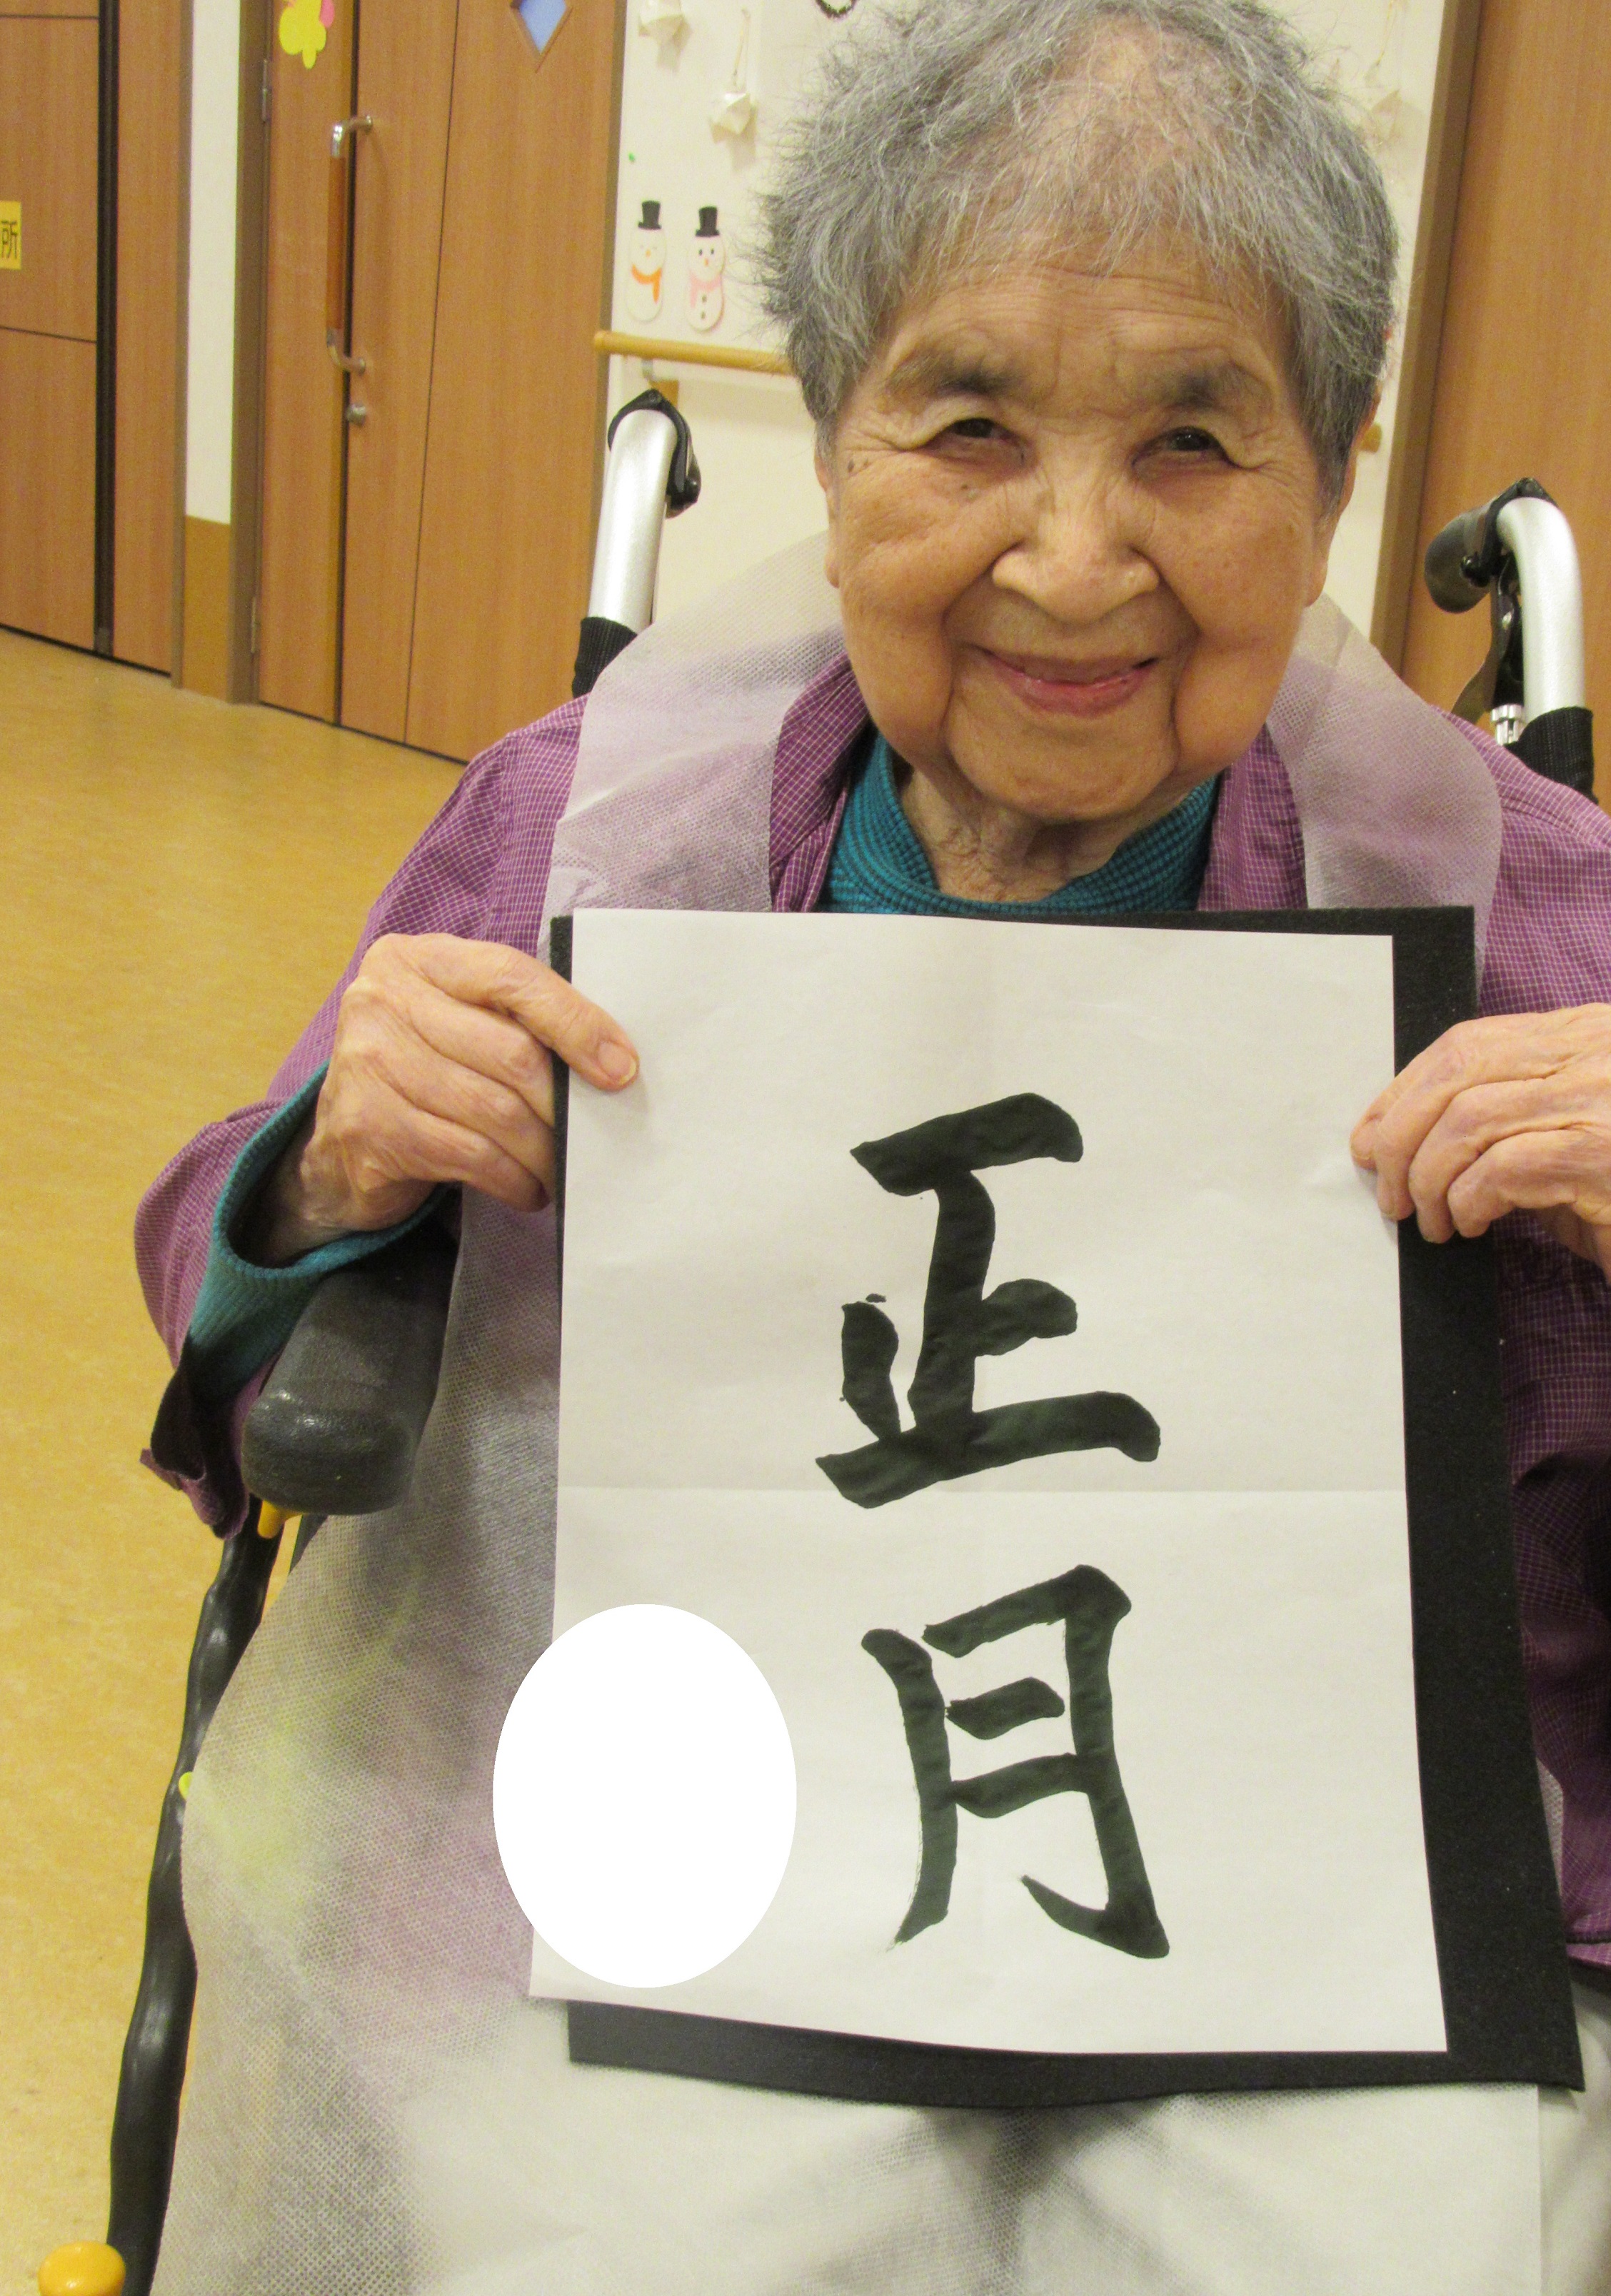 所
正月